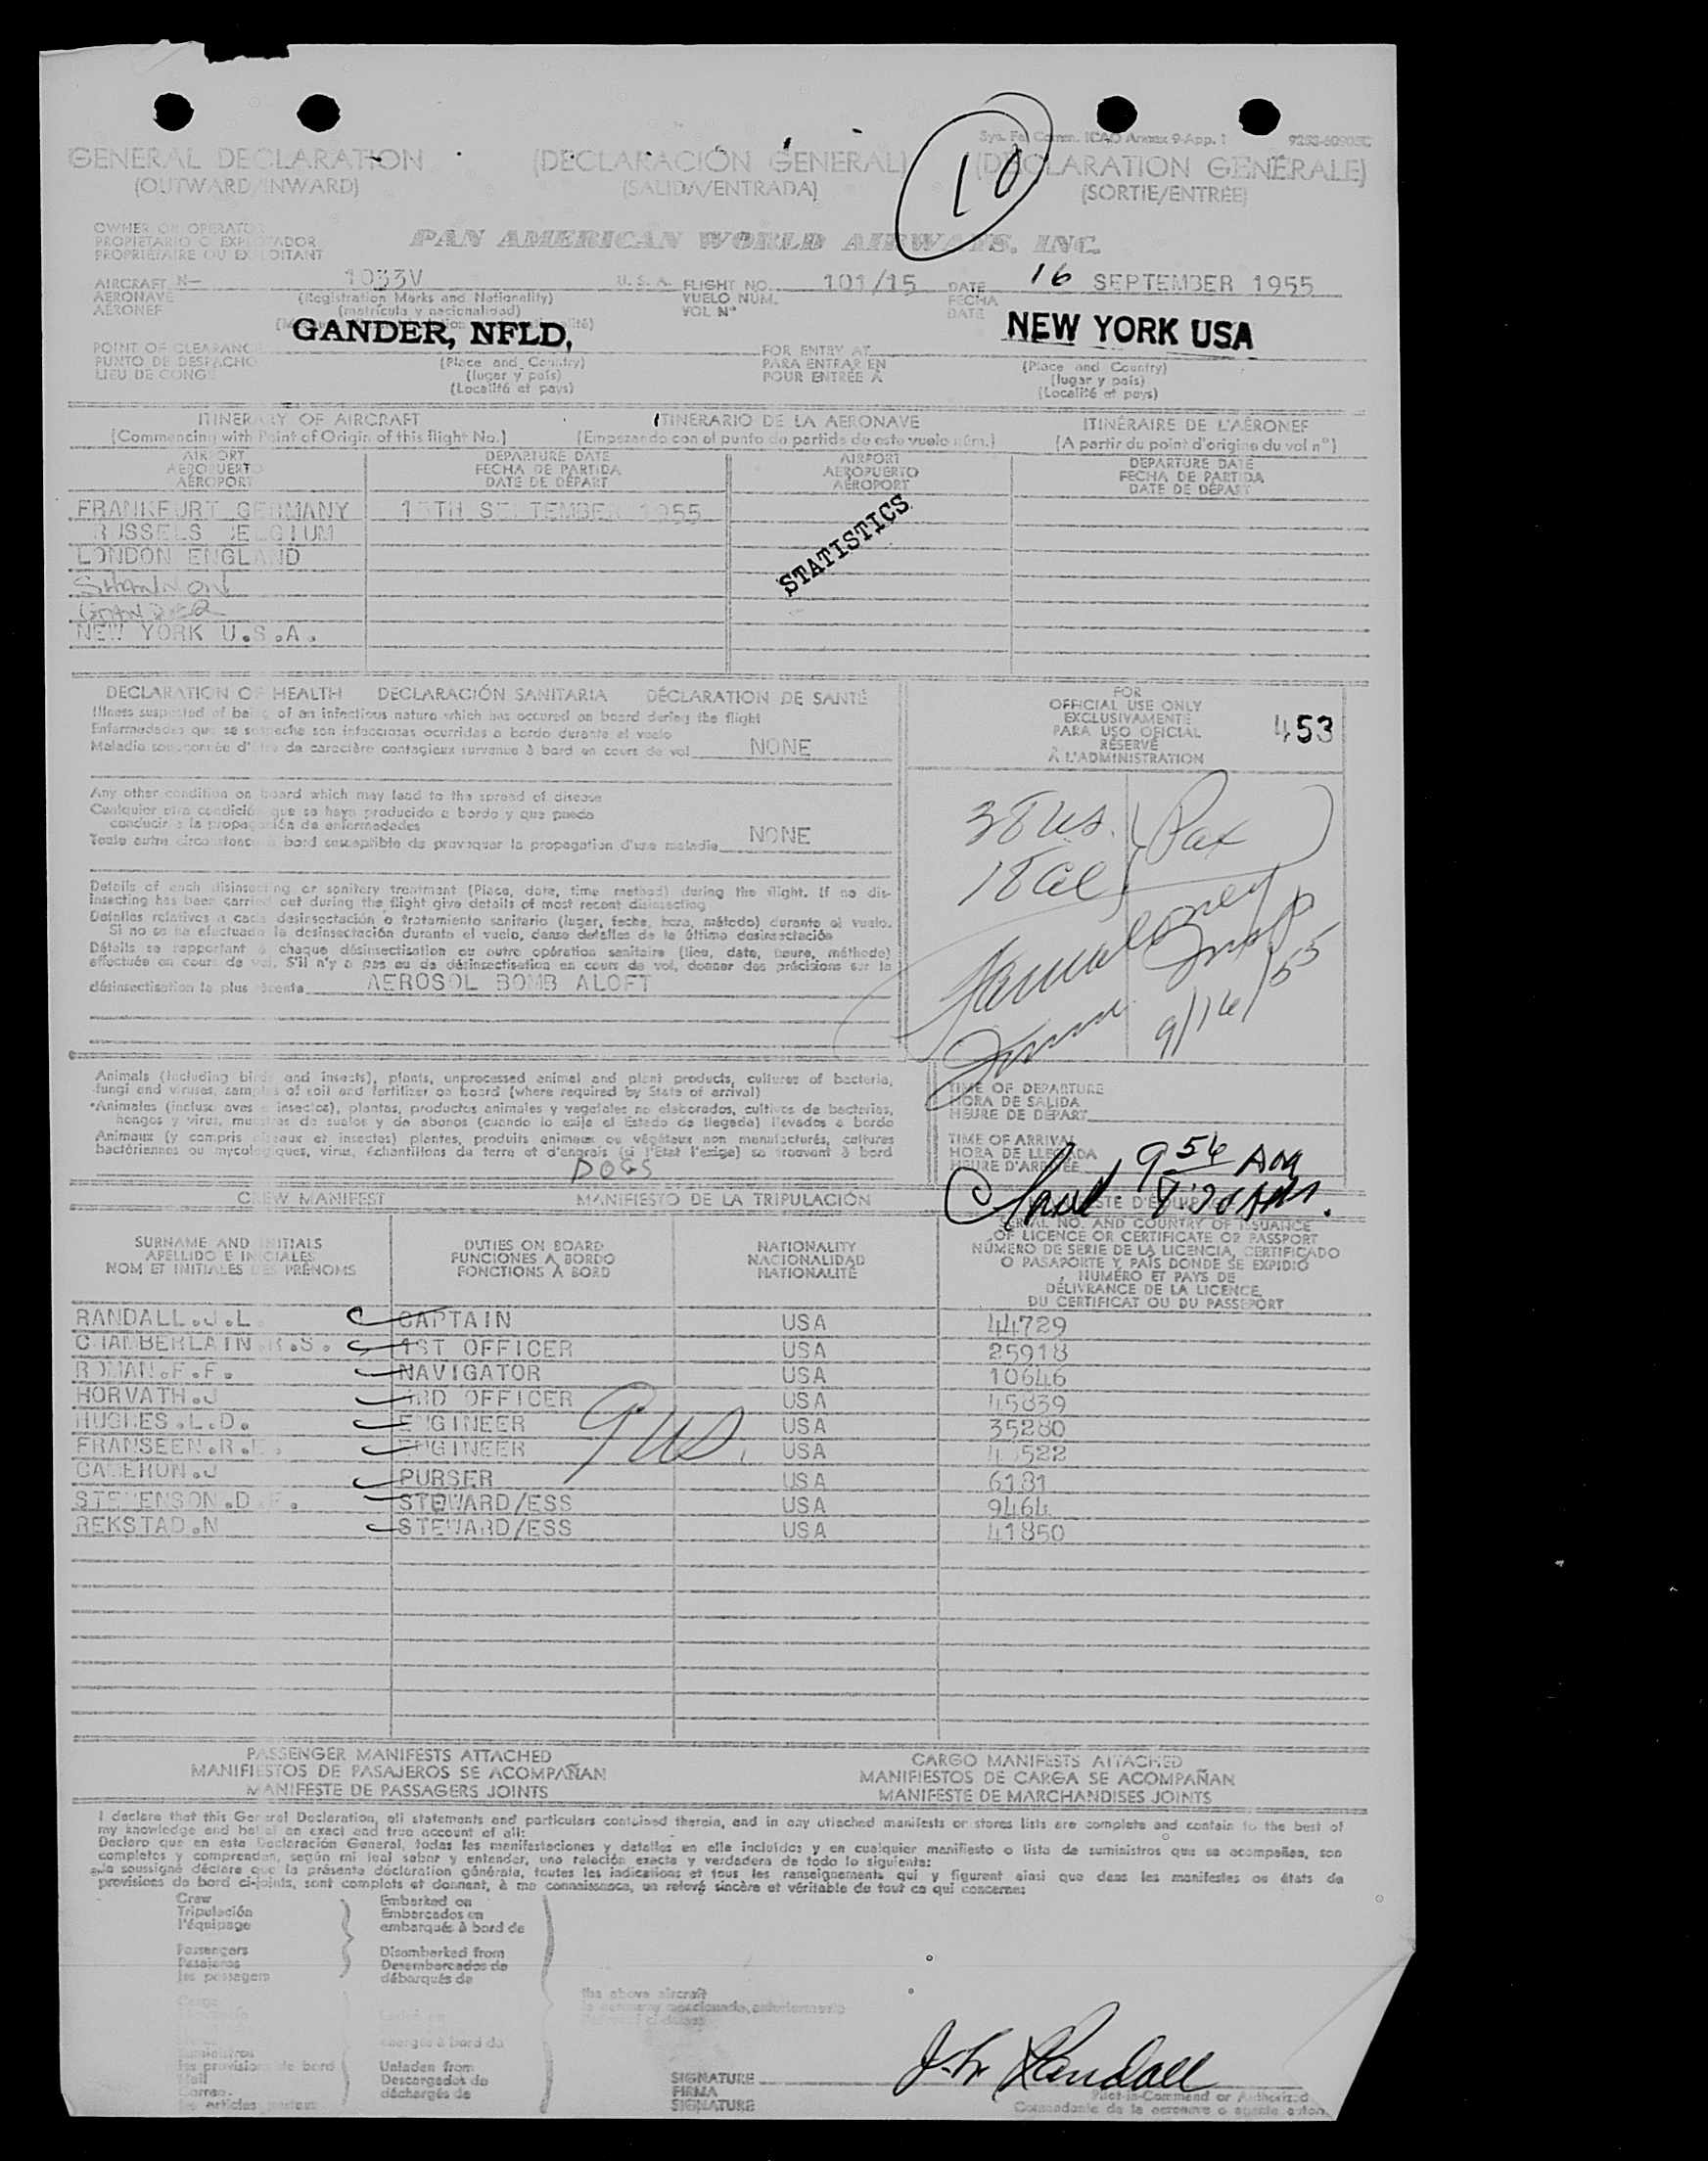 Sys. Fa. Comm. ICAO Annex 9-App. 1
GENERAL DECLARATION (DECLARACIÓN GENERAL) (DÉCLARATION GÉNÉRALE)
(OUTWARD/INWARD) (SALIDA/ENTRADA) (SORTIE/ENTRÉE)
10
OWNER OR OPERATOR
PROPIETARIO O EXPLOTADOR
PROPRIÉTAIRE OU EXPLOITANT
PAN AMERICAN WORLD AIRWAYS, INC.
AIRCRAFT N- 1033V U.S.A. FLIGHT NO. 101/15 DATE 16 SEPTEMBER 1955
AERONAVE (Registration Marks and Nationality) VUELO NUM. FECHA
AÉRONEF (matrícula y nacionalidad) VOL N° DATE
GANDER, NFLD, NEW YORK USA
POINT OF CLEARANCE (Place and Country) FOR ENTRY AT (Place and Country)
PUNTO DE DESPACHO (lugar y país) PARA ENTRAR EN (lugar y país)
LIEU DE CONGÉ (Localité et pays) POUR ENTRÉE À (Localité et pays)
ITINERARY OF AIRCRAFT ITINERARIO DE LA AERONAVE ITINÉRAIRE DE L'AÉRONEF
(Commencing with Point of Origin of this flight No.) (Empezando con el punto de partida de este vuelo núm.) (A partir du point d'origine du vol n°)
AIRPORT DEPARTURE DATE AIRPORT DEPARTURE DATE
AEROPUERTO FECHA DE PARTIDA AEROPUERTO FECHA DE PARTIDA
AÉROPORT DATE DE DÉPART AÉROPORT DATE DE DÉPART
FRANKFURT GERMANY SEPTEMBER 1955
BRUSSELS BELGIUM
LONDON ENGLAND
SHANNON
GANDER
NEW YORK U.S.A.
STATISTICS
DECLARATION OF HEALTH DECLARACIÓN SANITARIA DÉCLARATION DE SANTÉ
Illness suspected of being of an infectious nature which has occured on board during the flight
Enfermedades que se sospeche son infecciosas ocurridas a bordo durante el vuelo
Maladie soupçonnée d'être de caractère contagieux survenue à bord en cours de vol NONE
FOR
OFFICIAL USE ONLY
EXCLUSIVAMENTE
PARA USO OFICIAL
RÉSERVÉ
À L'ADMINISTRATION
453
Any other condition on board which may lead to the spread of disease
Cualquier otra condición que se haya producido a bordo y que pueda
conducir a la propagación de enfermedades
Toute autre circonstance à bord susceptible de provoquer la propagation d'une maladie NONE
38 US.
18 al
Pax
Details of each disinsecting or sanitary treatment (Place, date, time method) during the flight. If no dis-
insecting has been carried out during the flight give details of most recent disinsecting
Detalles relativos a cada desinsectación o tratamiento sanitario (lugar, fecha, hora, método) durante el vuelo.
Si no se ha efectuado la desinsectación durante el vuelo, danse detalles de la última desinsectación
Détails se rapportant à chaque désinsectisation ou autre opération sanitaire (lieu, date, heure, méthode)
effectuée en cours de vol. S'il n'y a pas eu de désinsectisation en cours de vol, donner des précisions sur la
désinsectisation la plus récente AEROSOL BOMB ALOFT
Insp
9/16/55
Animals (including birds and insects), plants, unprocessed animal and plant products, cultures of bacteria,
fungi and viruses, samples of soil and fertilizer on board (where required by State of arrival)
*Animales (incluso aves e insectos), plantas, productos animales y vegetales no elaborados, cultivos de bacterias,
hongos y virus, muestras de suelos y de abonos (cuando lo exija el Estado de llegada) llevados a bordo
Animaux (y compris oiseaux et insectes) plantes, produits animaux ou végétaux non manufacturés, cultures
bactériennes ou mycologiques, virus, échantillons de terre et d'engrais (si l'État l'exige) se trouvant à bord
DOGS
TIME OF DEPARTURE
HORA DE SALIDA
HEURE DE DÉPART
TIME OF ARRIVAL
HORA DE LLEGADA
HEURE D'ARRIVÉE 9 54 AM
CREW MANIFEST MANIFIESTO DE LA TRIPULACIÓN
SURNAME AND INITIALS
APELLIDO E INICIALES
NOM ET INITIALES DES PRÉNOMS
DUTIES ON BOARD
FUNCIONES A BORDO
FONCTIONS À BORD
NATIONALITY
NACIONALIDAD
NATIONALITÉ
SERIAL NO. AND COUNTRY OF ISSUANCE
OF LICENCE OR CERTIFICATE OR PASSPORT
NÚMERO DE SERIE DE LA LICENCIA, CERTIFICADO
O PASAPORTE Y PAÍS DONDE SE EXPIDIÓ
NUMÉRO ET PAYS DE
DÉLIVRANCE DE LA LICENCE,
DU CERTIFICAT OU DU PASSEPORT
RANDALL.J.L. CAPTAIN USA 44729
CHAMBERLAIN.R.S. 1ST OFFICER USA 25918
ROMAN.F.F. NAVIGATOR USA 10646
HORVATH.J 3RD OFFICER USA 45839
HUGHES.L.D. ENGINEER USA 35280
FRANSEEN.R. ENGINEER USA
CAMERON.J PURSER USA 6181
STEVENSON.D. STEWARD/ESS USA 9464
REKSTAD.N STEWARD/ESS USA 41850
9 US.
PASSENGER MANIFESTS ATTACHED CARGO MANIFESTS ATTACHED
MANIFIESTOS DE PASAJEROS SE ACOMPAÑAN MANIFIESTOS DE CARGA SE ACOMPAÑAN
MANIFESTE DE PASSAGERS JOINTS MANIFESTE DE MARCHANDISES JOINTS
I declare that this General Declaration, all statements and particulars contained therein, and in any attached manifests or stores lists are complete and contain to the best of
my knowledge and belief an exact and true account of all:
Declaro que en esta Declaración General, todas las manifestaciones y detalles en ella incluidos y en cualquier manifiesto o lista de suministros que se acompañan, son
completos y comprenden, según mi leal saber y entender, una relación exacta y verdadera de todo lo siguiente:
Je soussigné déclare que la présente déclaration générale, toutes les indications et tous les renseignements qui y figurent ainsi que dans les manifestes ou états de
provisions de bord ci-joints, sont complets et donnent, à ma connaissance, un relevé sincère et véritable de tout ce qui concerne:
Crew Embarked on
Tripulación Embarcados en
l'équipage embarqués à bord de
Passengers Disembarked from
Pasajeros Desembarcados de
les passagers débarqués de
Cargo
the above aircraft
chargés à bord du
les provisions de bord Unladen from
Mail Descargados de
Correo déchargés de
les articles
SIGNATURE J.L. Randall
FIRMA Pilot-in-Command or Authorized
SIGNATURE Comandante de la aeronave o agente